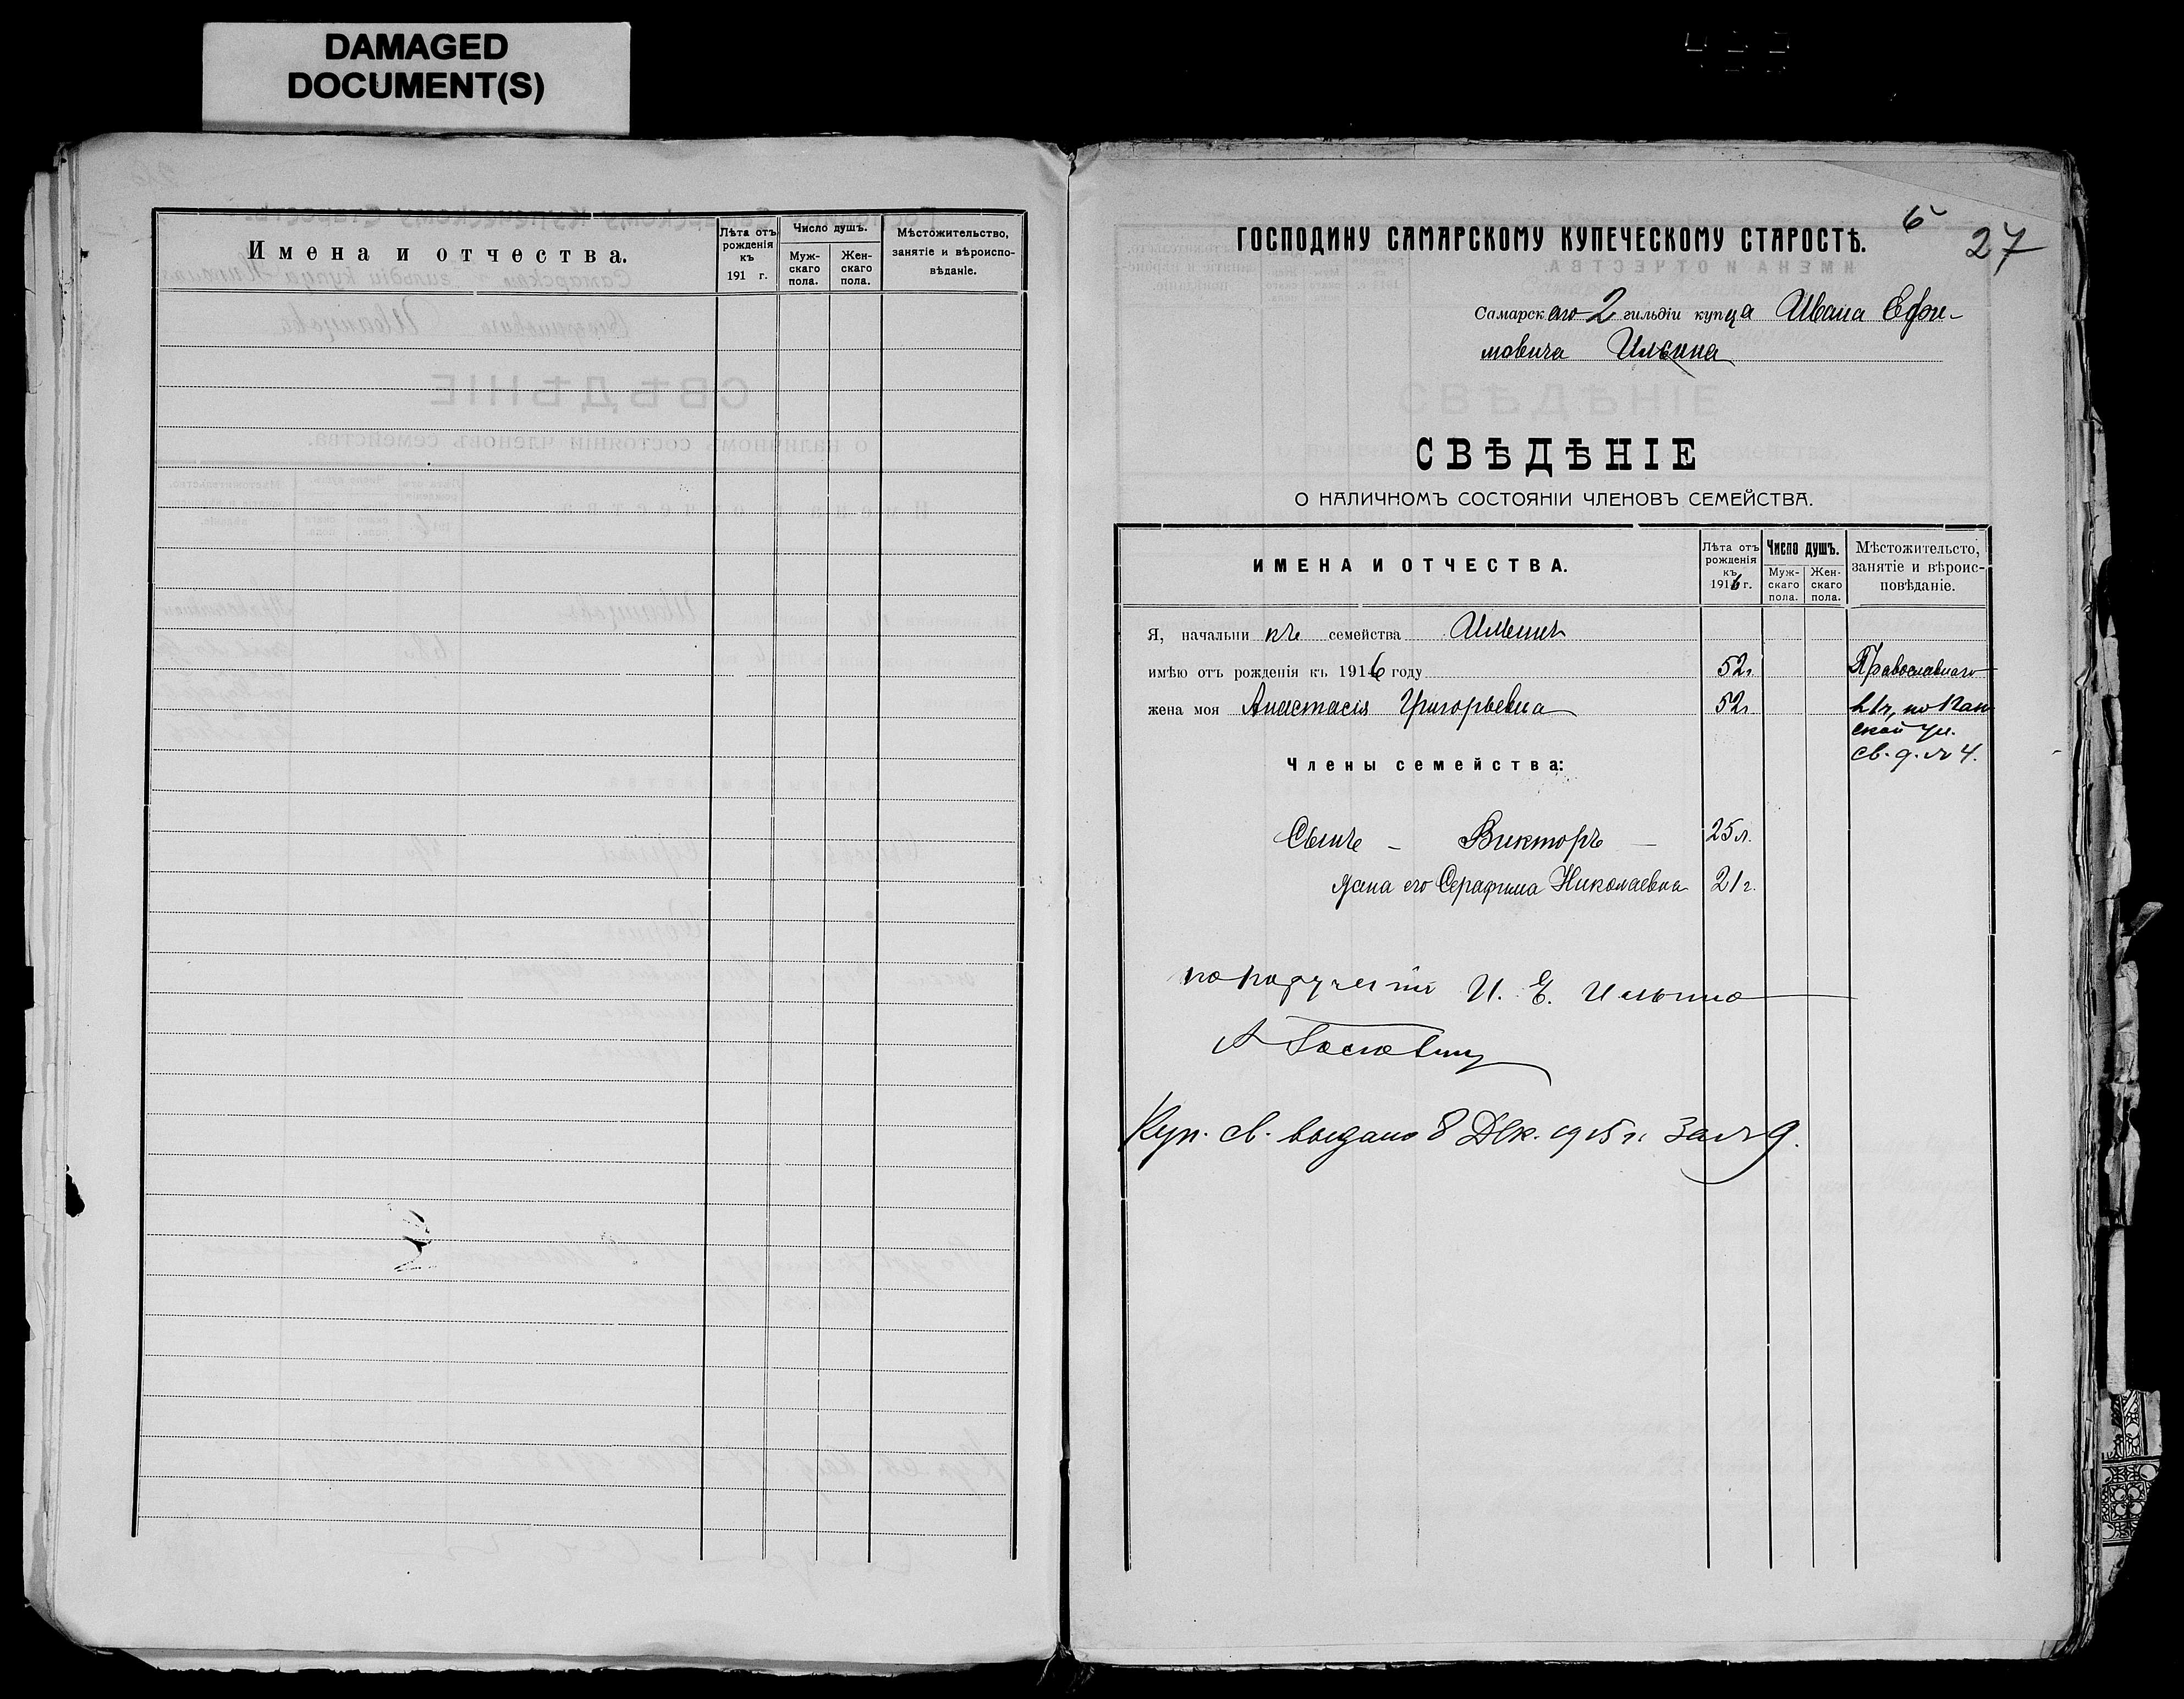 DAMAGED
DOCUMENT(S)
Имена и отчества.
Лѣта отъ рожденія къ 191 г.
Число душъ.
Муж-скаго пола.
Жен-скаго пола.
Мѣстожительство, занятіе и вѣроиспо-вѣданіе.
6
27
ГОСПОДИНУ САМАРСКОМУ КУПЕЧЕСКОМУ СТАРОСТѢ.
Самарскаго 2 гильдіи купца Ивана Ефи-
мовича Ильина
СВѢДѢНІЕ
О НАЛИЧНОМЪ СОСТОЯНІИ ЧЛЕНОВЪ СЕМЕЙСТВА.
ИМЕНА И ОТЧЕСТВА.
Лѣта отъ рожденія къ 1916 г.
Число душъ.
Муж-скаго пола.
Жен-скаго пола.
Мѣстожительсто, занятіе и вѣроис-повѣданіе.
Я, начальникъ семейства Ильинъ
имѣю отъ рожденія къ 1916 году 52 г. Православнаго
жена моя Анастасія Григорьевна 52 г.
ской ул.
св. д. № 4.
Члены семейства:
Сынъ - Викторъ — 25 л.
жена его Серафима Николаевна 21 г.
по порученію И. Е. Ильина
Куп. св. выдано 8 Дек. 1915 г. за № 9.